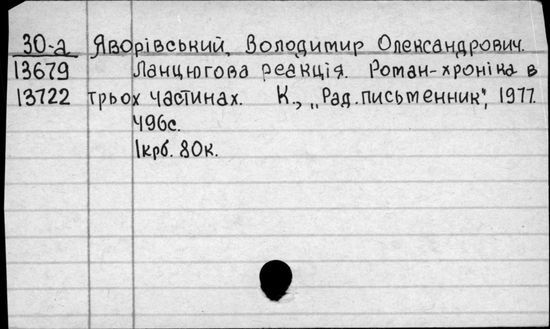 30-а Яворівський, Володимир Олександрович.
13679 Ланцюгова реакція. Роман-хроніка в
13722 трьох частинах. К., „Рад.письменник", 1977.
496с.
1крб. 80к.